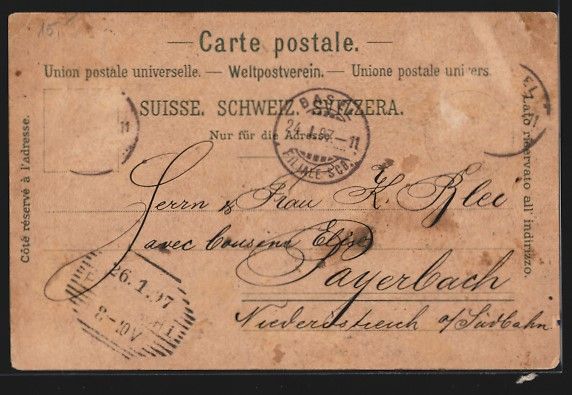 15.
— Carte postale. —
Union postale universelle. — Weltpostverein. — Unione postale univers
SUISSE. SCHWEIZ. SVIZZERA.
Nur für die Adresse.
BASEL
24. I. 97. – 11
FILIALE
11
Côté réservé à l'adresse.
Lato riservato all' indirizzo.
Herrn & Frau K. Blei
avec cousine
Payerbach
Niederöstreich a/Südbahn
26.1.97
8–10V